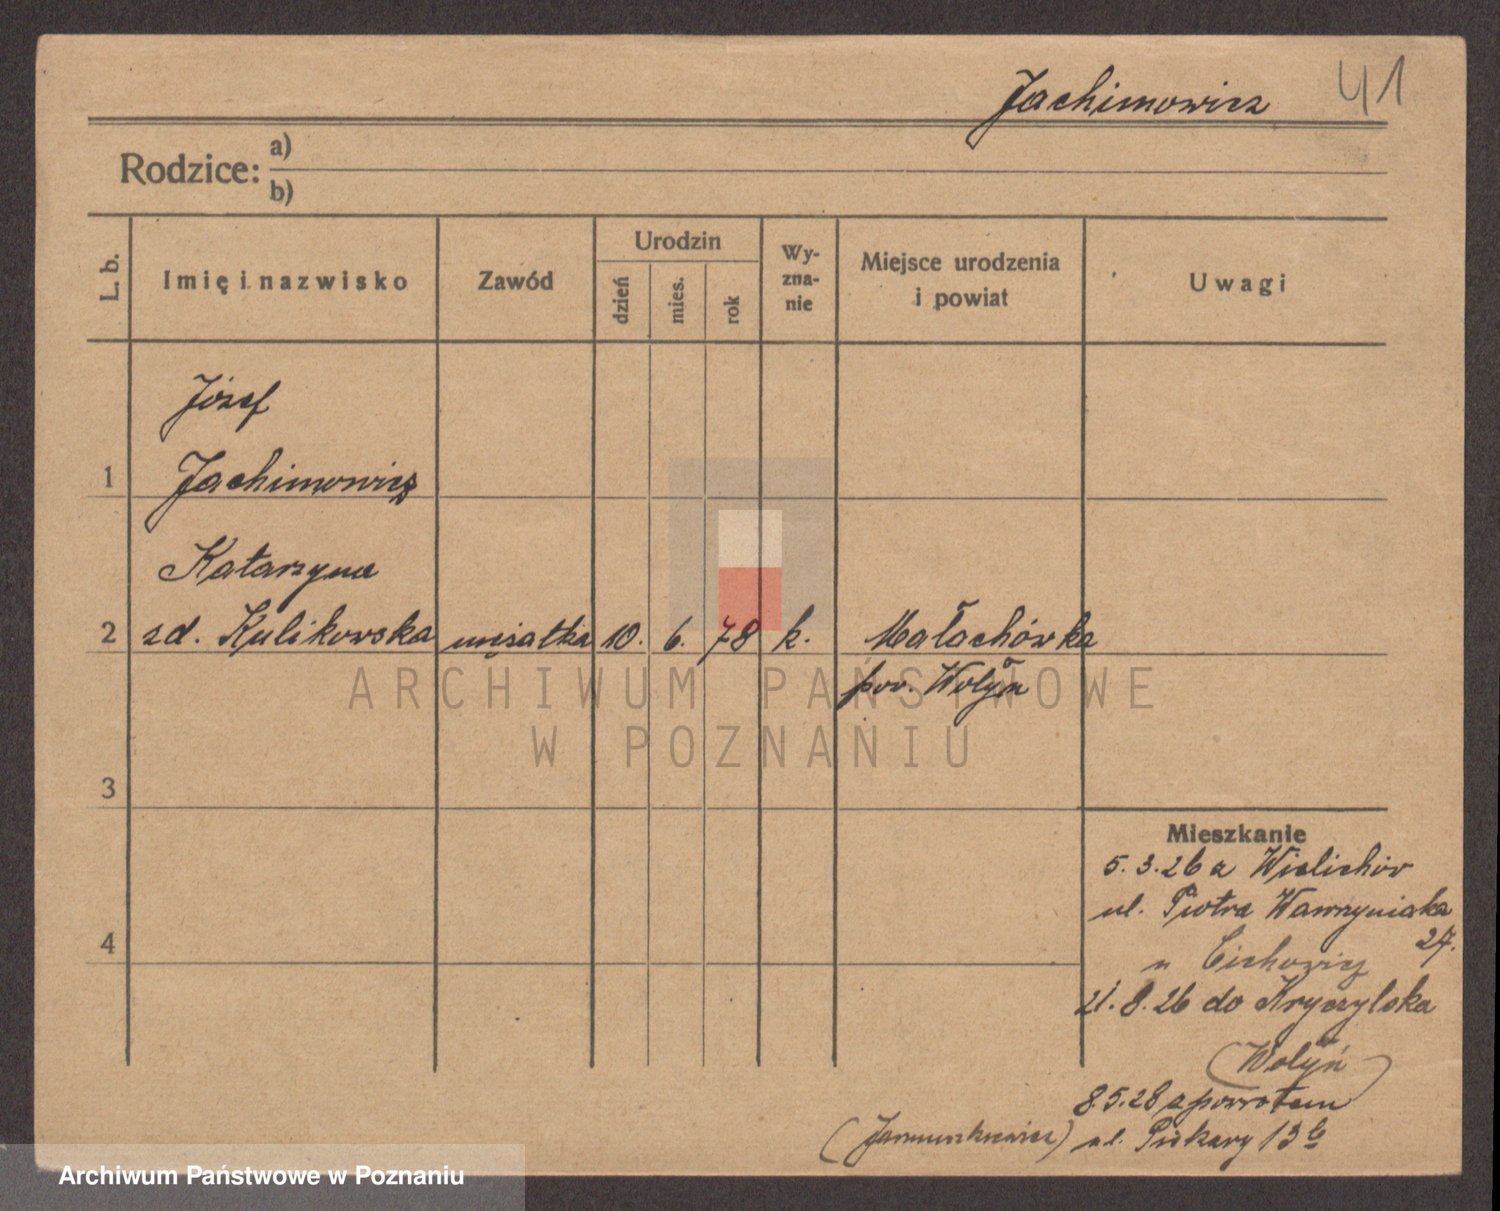 Jachimowicz 41
Rodzice: a)
b)
L. b.
Imię i nazwisko
Zawód
Urodzin
dzień
mies.
rok
Wy-
zna-
nie
Miejsce urodzenia
i powiat
Uwagi
Józef
1 Jachimowicz
Katarzyna
2 zd. Kulikowska mężatka 10. 6. 78 k. Małachówka
pow. Wołyń
ARCHIWUM PAŃSTWOWE
W POZNANIU
3
4
Mieszkanie
5. 3. 26 z Wielichów
ul. Piotra Wawrzyniaka
27.
u Cichowicz
21. 8. 26 do
(Wołyń)
8.5.28 z powrotem
(Januszkiewicz) ul. Piekary 13b
Archiwum Państwowe w Poznaniu